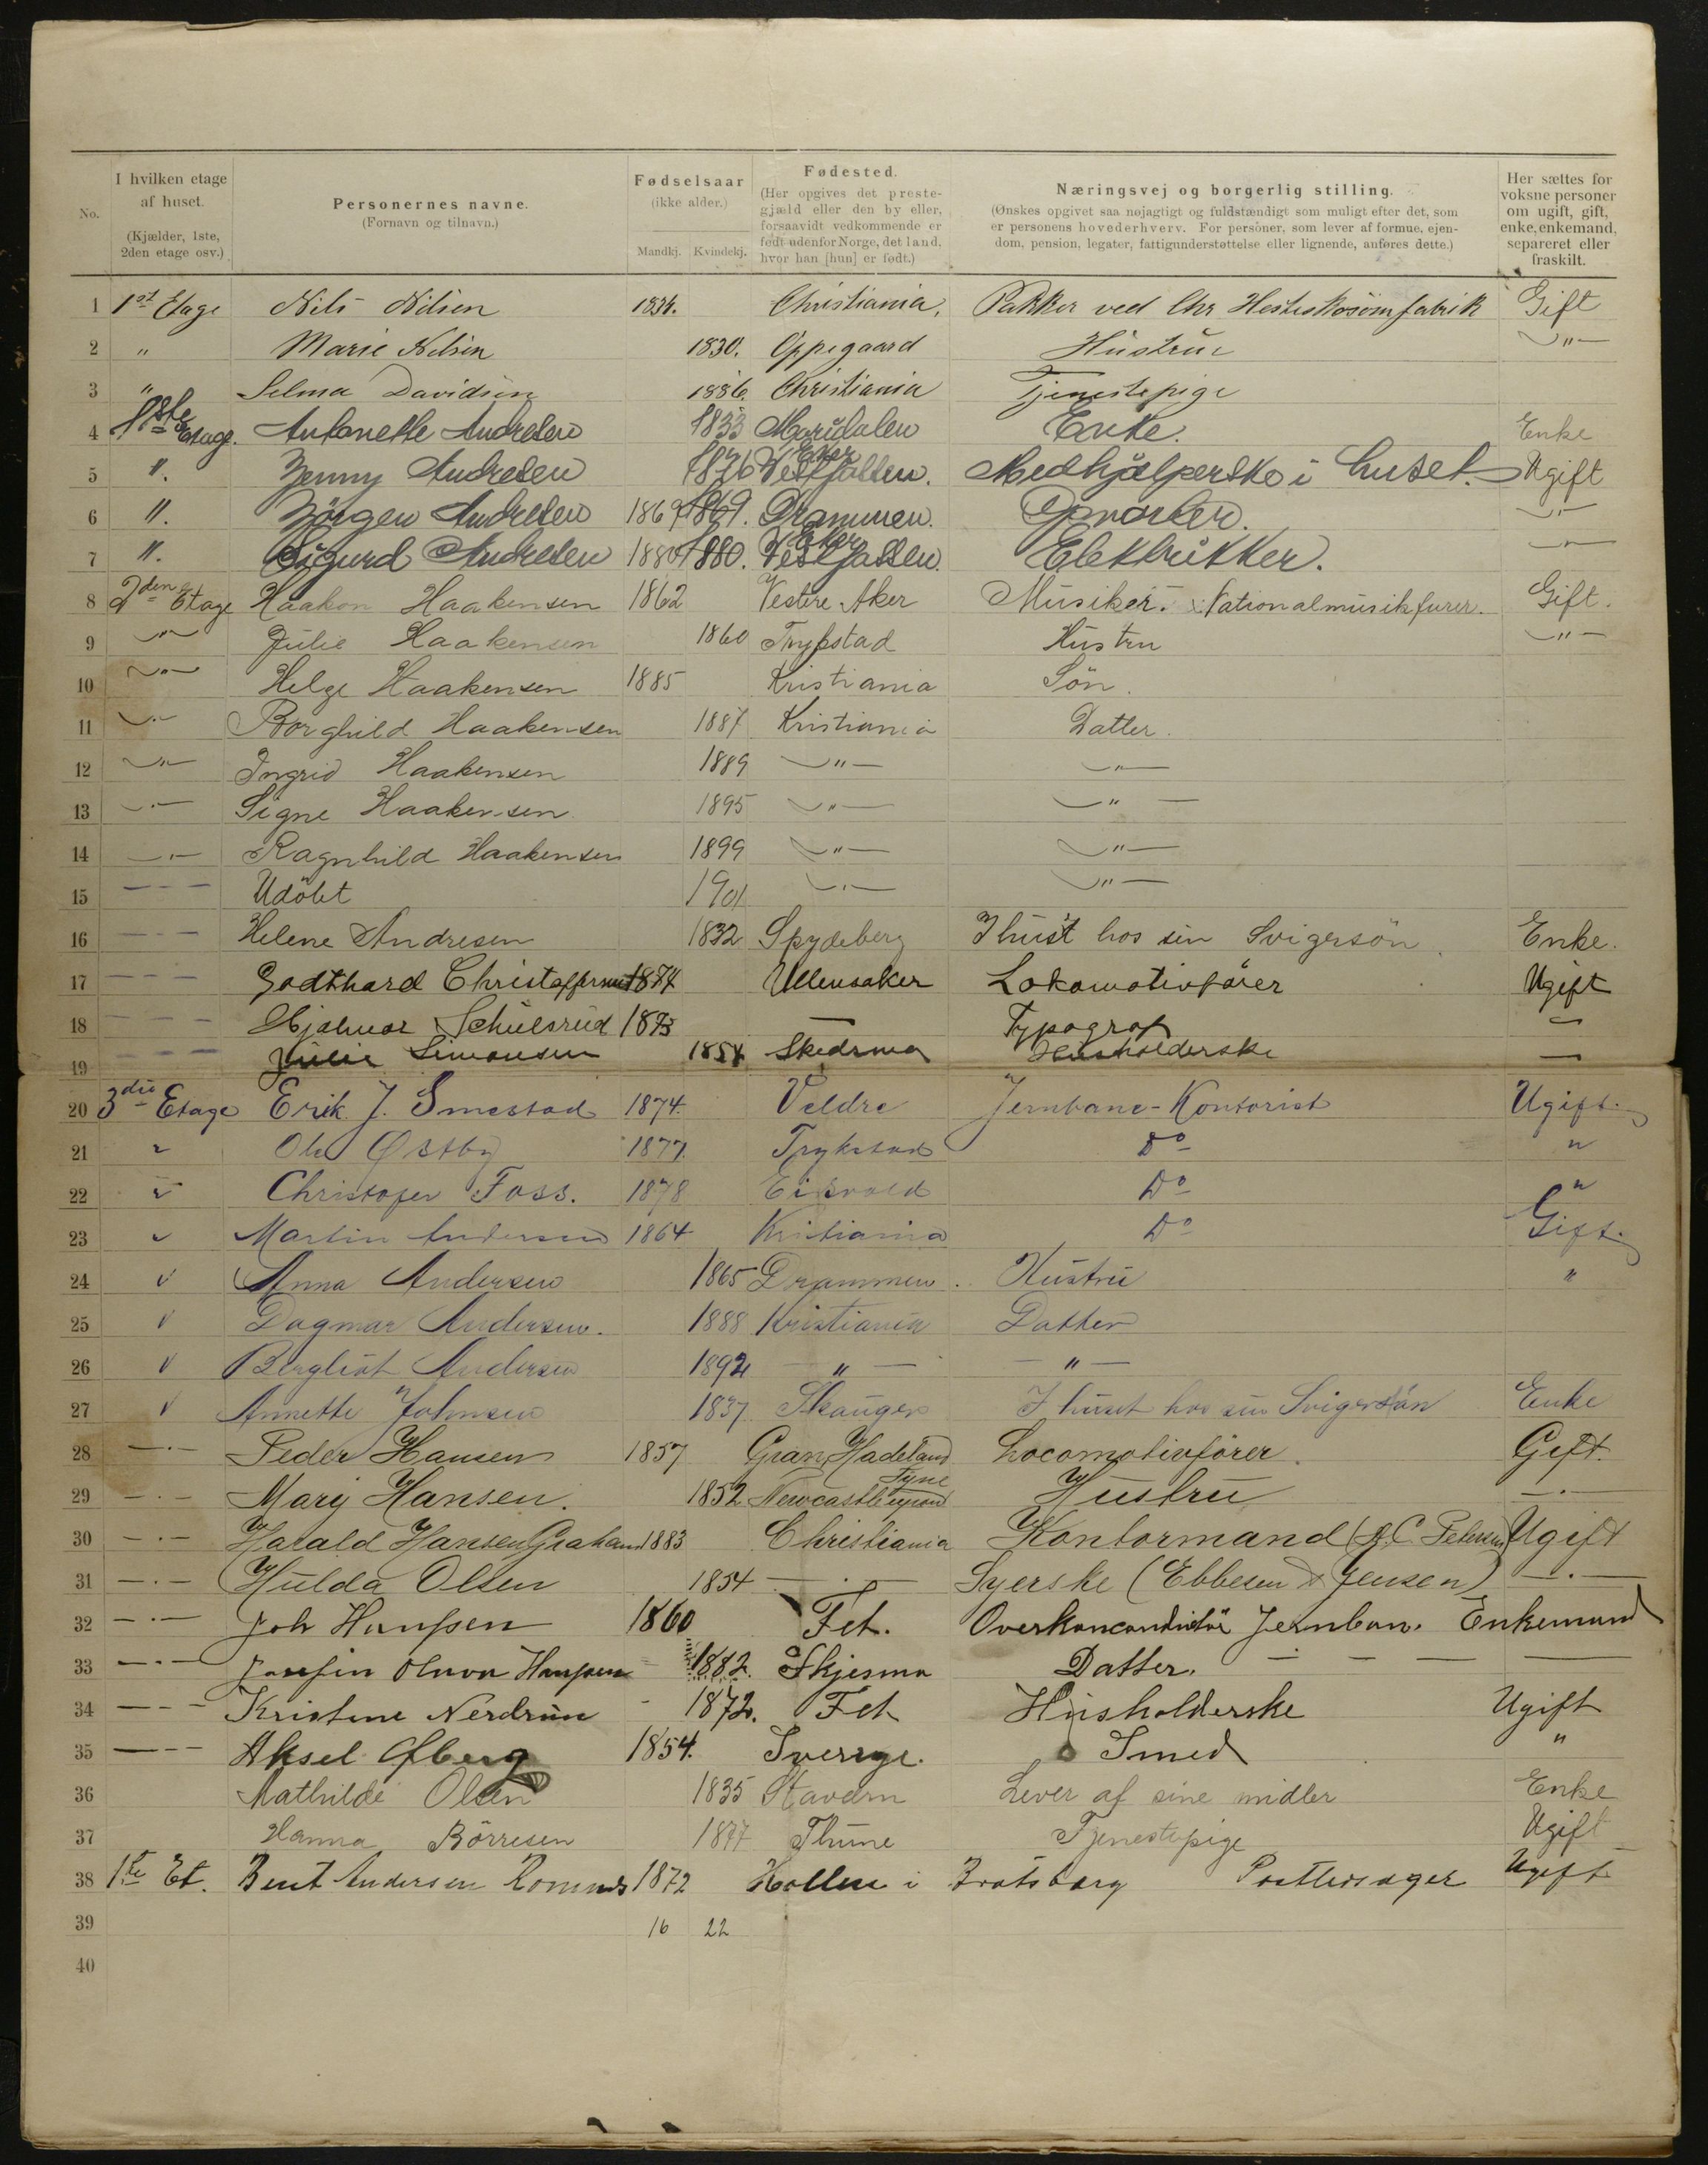 No.
I hvilken etage af huset. (Kjælder, 1ste, 2den etage osv.)
Personernes navne. (Fornavn og tilnavn.)
Fødselsaar (ikke alder.) Mandkj. Kvindekj.
Fødested. (Her opgives det prestegjæld eller den by eller, forsaavidt vedkommende er født udenfor Norge, det land, hvor han [hun] er født.)
Næringsvej og borgerlig stilling. (Ønskes opgivet saa nøjagtigt og fuldstændigt som muligt efter det, som er personens hovederhverv. For personer, som lever af formue, ejendom, pension, legater, fattigunderstøttelse eller lignende, anføres dette.)
Her sættes for voksne personer om ugift, gift, enke, enkemand, separeret eller fraskilt.
1 1st Etage Nils Nilsen 1834. Christiania. Pakker ved Chr Hesteskosömfabrik Gift
2 " Marie Nilsen 1830. Oppegaard Hustrue —"—
3 " Selma Davidsen 1886. Christiania Tjenestepige
4 1ste Etage. Antonette Andresen 1833 Maridalen Enke. Enke
5 ". Jenny Andresen 1876 Eker Vestfossen. Medhjælperske i huset. Ugift
6 ". Jörgen Andresen 1869 1869. Drammen. —"—
7 ". Sigurd Andresen 1880 1880. Eker Vestfossen. Elektriker. —"—
8 2den Etage Haakon Haakensen 1862 Vestre Aker Musiker. Nationalmusikfurer. Gift.
9 —"— Julie Haakensen 1860 Trykstad Hustru —"—
10 —"— Helge Haakensen 1885 Kristiania Sön.
11 —"— Borghild Haakensen 1887 Kristiania Datter.
12 —"— Ingrid Haakensen 1889 —"— —"—
13 —"— Signe Haakensen 1895 —"— —"—
14 —"— Ragnhild Haakensen 1899 —"— —"—
15 — — — Udöbt 1901 —"— —"—
16 — — — Helene Andresen 1832 Spydeberg I huset hos sin Svigersön. Enke.
17 — — — Godthard Christoffersen 1874 Ullensaker Lokomotivfører Ugift
18 — — — Hjalmar Schulsrud 1873 — Typograf —
19 Julie Simonsen 1854 Skedsmo Husholderske —
20 3die Etage Erik J. Smestad 1874. Veldre Jernbane-Kontorist Ugift.
21 " Ole Østby 1877. Trykstad Do "
22 " Christofer Foss. 1878 Eidsvold Do "
23 " Martin Andersen 1864 Kristiania Do Gift.
24 " Anna Andersen 1865 Drammen. Hustru "
25 " Dagmar Andersen. 1888 Kristiania Datter
26 " Bergliot Andersen 1892 — " — — " —
27 " Annette Johnsen 1837 Skauger I huset hos sin Svigersön Enke
28 —"— Peder Hansen 1857 Gran Hadeland Locomotivförer. Gift.
29 —"— Mary Hansen. 1852 Newcastle upon Tyne Hustru —"—
30 —"— Harald Hansen Graham 1883 Christiania Kontormand (A. C. Petersen) Ugift
31 —"— Hulda Olsen 1854 —"— Syerske (Ebbesen & Jensen) —"—
32 —"— Joh Hansen 1860 Fet. Overkonconduktör Jernban. Enkemand
33 —"— Josefin Hansen 1882. Skjesmo Datter. — — — —
34 — — — Kristine Nerdrum 1872. Fet Husholderske Ugift
35 — — — Aksel Øfberg 1854. Sverrge. Smed "
36 Mathilde Olsen 1835 Stavern Lever af sine midler Enke
37 Hanna Börresen 1877 Thune Tjenestepige Ugift
38 1ste Et. Bent Andersen 1872 Hollen i Bratsberg Postbesøger Ugift
39 16 22
40